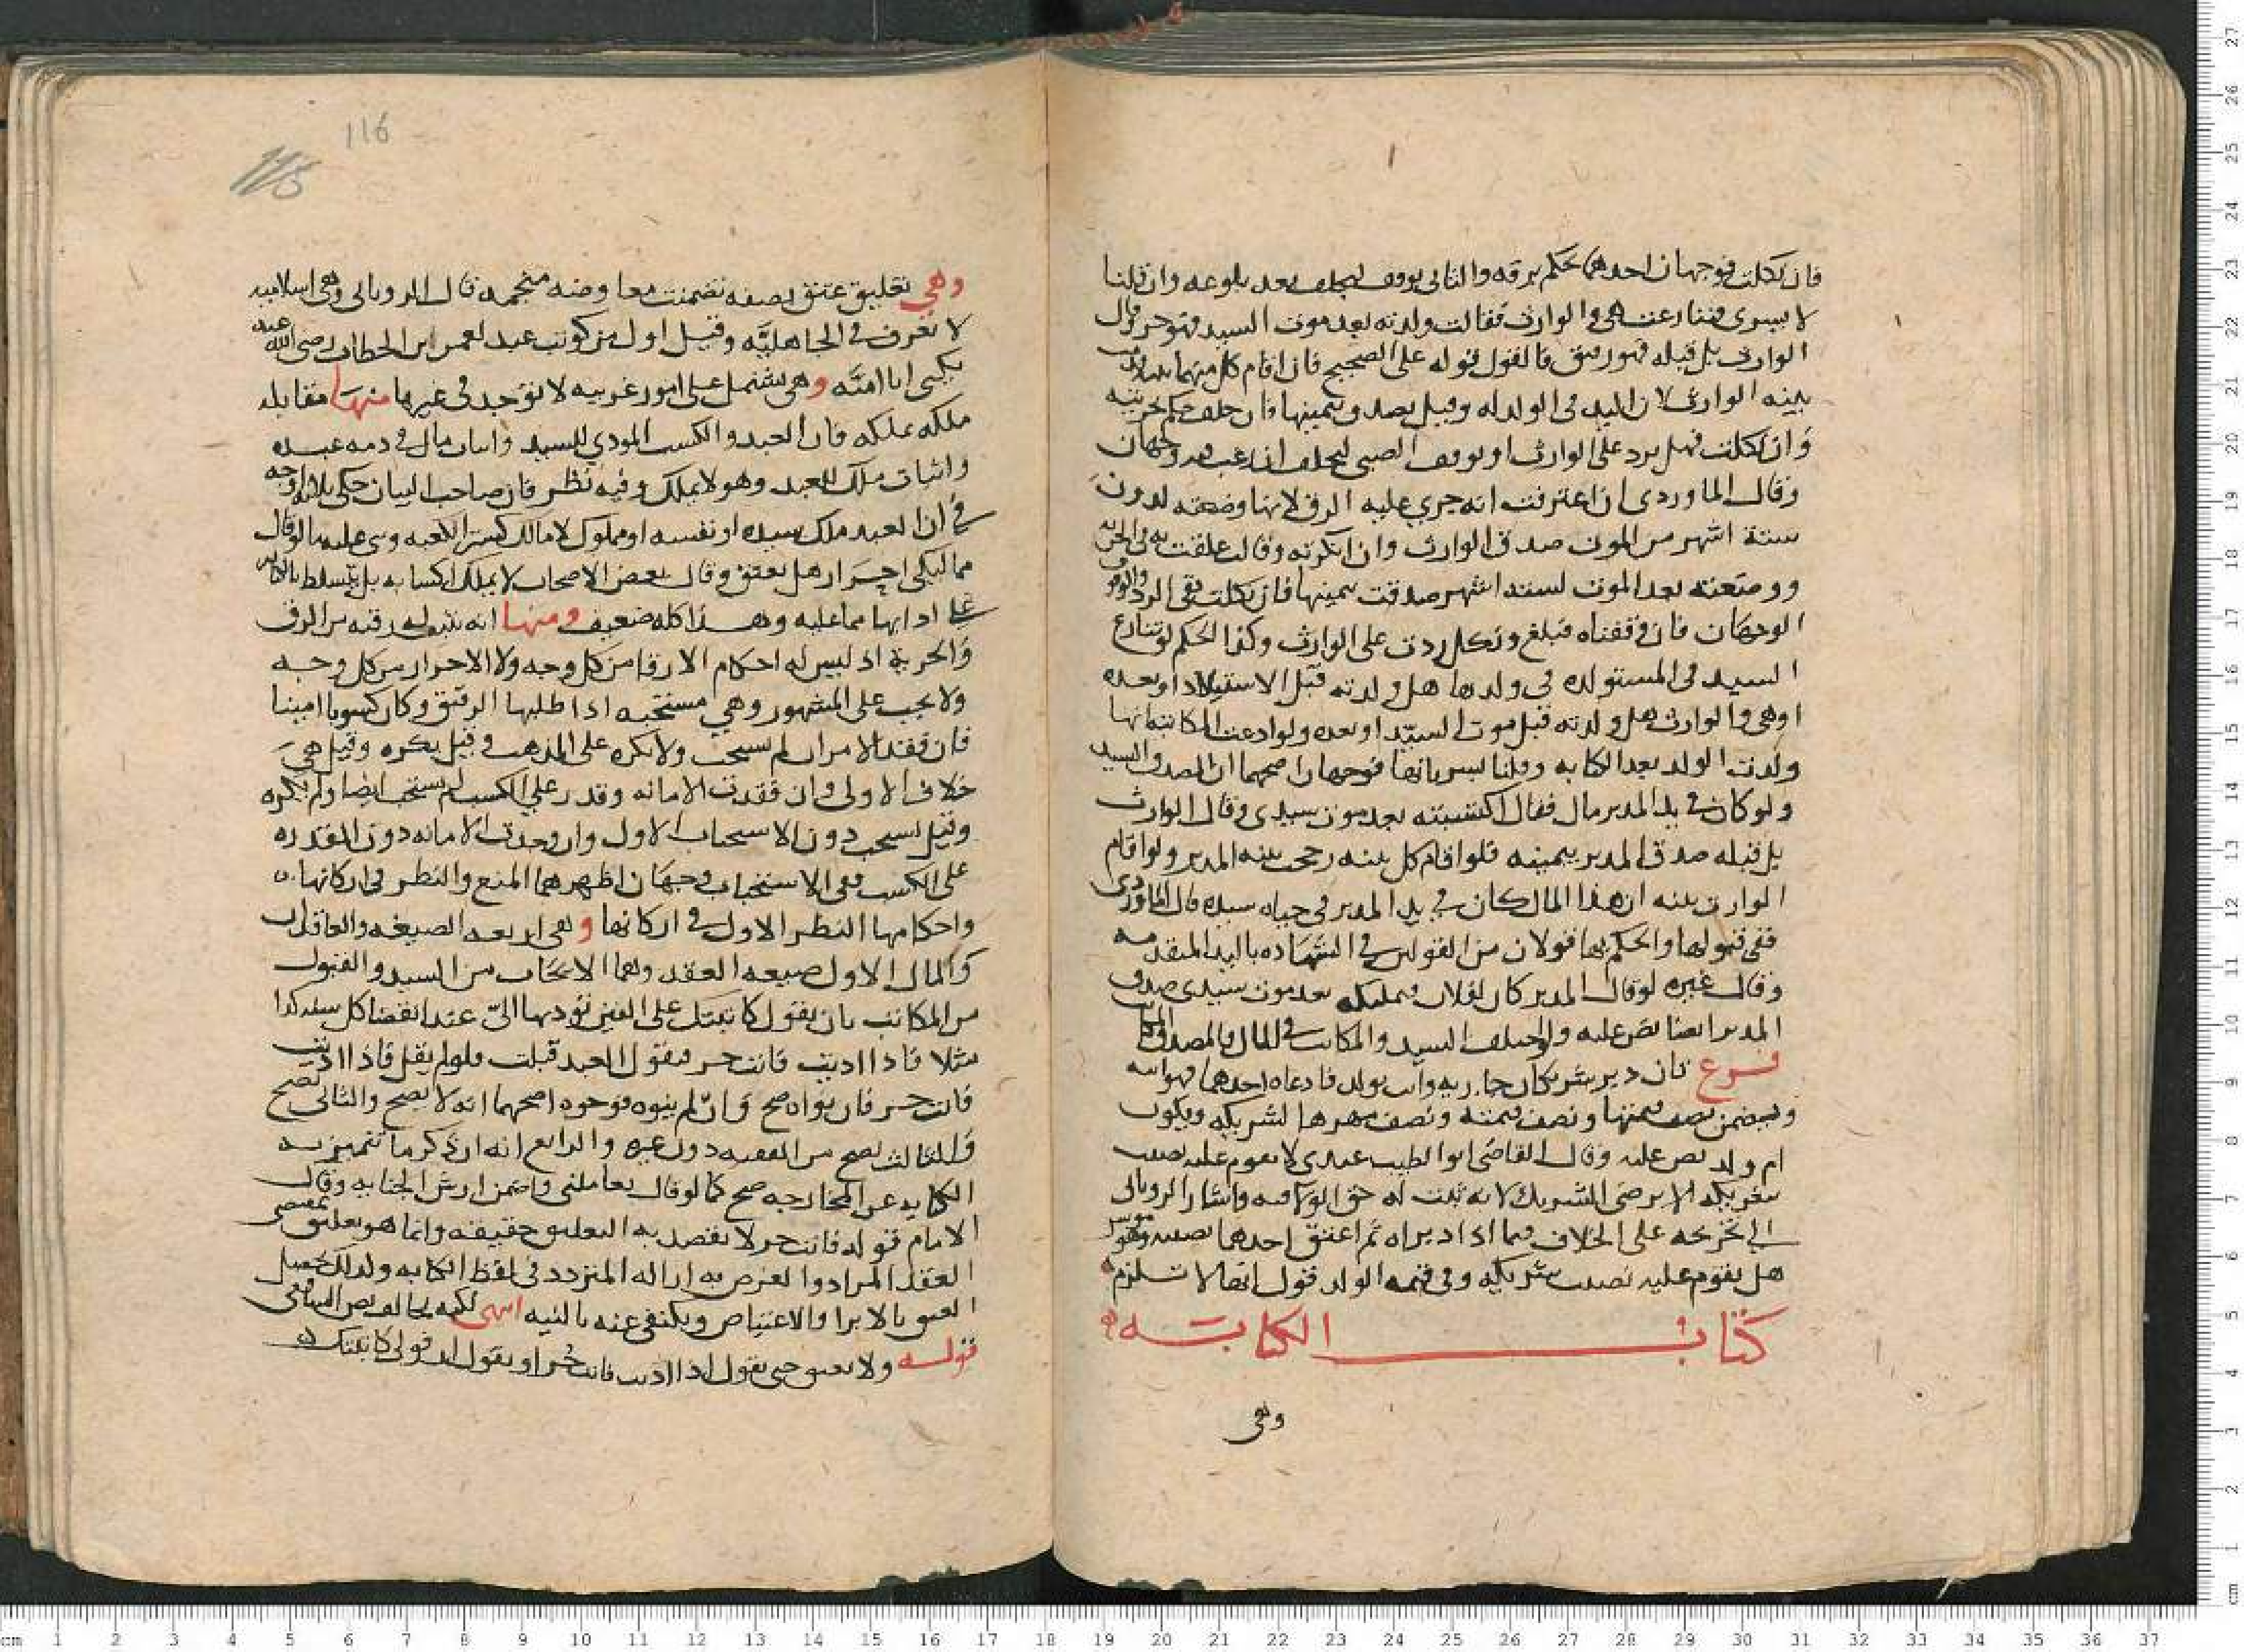 فان نكلت فوجهان احدهما يحكم برقه والثاني يوقف ليحلف بعد بلوغه وان قلنا
لا يسري فتنازعت هي والوارث فقالت ولدته بعد موت السيد فهو حر وقال
الوارث بل قبله فهو رقيق فالقول قوله على الصحيح فان اقام كل منهما بينة
بينه الوارث لان اليد في الولد له وقيل يصدق بيمينها فان حلفت حكم بحريته
وان نكلت فهل يرد على الوارث او يوقف الصبي ليحلف ان رغب فيه وجهان
وقال الماوردي ان اعترفت انه جري عليه الرق لانها وضعته لدون
ستة اشهر من الموت صدق الوارث وان انكرته وقالت علقت به في الحرية
ووضعته بعد الموت لستة اشهر صدقت بيمينها فان نكلت ففي الرد
الوجهان فان وقفناه فبلغ ونكل ردت على الوارث وكذا الحكم لو تنازع
السيد في المستولده في ولدها هل ولدته قبل الاستيلاد او بعده
او هي والوارث هل ولدته قبل موت السيد او بعده ولو ادعت المكاتبة انها
ولدت الولد بعد الكتابه وقلنا بسريانها فوجهان اصحهما ان المصدق السيد
ولو كان في يد المدبر مال فقال اكتسبته بعد موت سيدي وقال الوارث
بل قبله صدق المدبر بيمينه فلو اقام كل بينه رجحت بينه المدبر ولو اقام
الوارث بينه ان هذا المال كان في يد المدبر في حياه سيده قال الماوردي
ففي قبولها والحكم بها قولان من القولين في الشهاده باليد المتقدمه
وقال غيره لو قال المدبر كان لفلان فملكته بعد موت سيدي صدق
المدبر ايضا نص عليه ولو اختلف السيد والمكاتب في المال فالمصدق المكاتب
فرع فان دبر شريكان جاريه واتت بولد فادعاه احدهما فهو ابنه
ويضمن نصف قيمتها ونصف قيمته ونصف مهرها لشريكه ويكون
ام ولد نص عليه وقال القاضي ابو الطيب عندي لا يقوم عليه نصيب
شريكه الا برضى الشريك لانه ثبت له حق الولا فيه واشار الروياني
الي تخريجه على الخلاف فيما اذا دبراه ثم اعتق احدهما نصيبه وهو موسر
هل يقوم عليه نصيب شريكه وفي قيمه الولد قول انها لا تلزم
كتاب الكتابه
وهي
116
وهي تعليق عتق بصفه تضمنت معاوضه منجمه قال الروياني وهي اسلاميه
لا تعرف في الجاهليه وقيل اول من كوتب عبد لعمر ابن الخطاب رضي الله عنه
يكنى ابا اميه وهي تشتمل على امور غريبه لا توجد في غيرها منها مقابله
ملكه بملكه فان العبد والكسب المودي للسيد واثبات مال في ذمه عبده
واثبات ملك للعبد وهو لا يملك وفيه نظر فان صاحب البيان حكى ثلاثه اوجه
في ان العبد ملك سيده او نفسه او مملوك لا مالك كستر الكعبه وبنى عليه ما لو قال
مماليكي احرار هل يعتق وقال بعض الاصحاب لا يملك اكسابه بل يتسلط بالكتابه
على ادايها مما عليه وهذا كله ضعيف ومنها انه رتبه مترددة من الرق
والحرية اذ ليس له احكام الارقا من كل وجه ولا الاحرار من كل وجه
ولا يجب على المشهور وهي مستحبه اذا طلبها الرقيق وكان كسوبا امينا
فان فقد الامران لم تستحب ولا تكره على المذهب وقيل يكره وقيل هي
خلاف الاولى وان فقدت الامانه وقدر على الكسب لم يستحب ايضا ولم تكره
وقيل تستحب دون الاستحباب الاول وان وجدت الامانه دون القدره
على الكسب ففي الاستحباب وجهان اظهرهما المنع والنظر في اركانها
واحكامها النظر الاول في اركانها وهي اربعه الصيغه والعاقدان
والمال الاول صيغه العقد وهما الايجاب من السيد والقبول
من المكاتب بان يقول كاتبتك على الفين تؤديهما الي عند انقضا كل سنه كذا
مثلا فاذا اديت فانت حر فيقول العبد قبلت فلو لم يقل فاذا اديت
فانت حر فان نواه صح وان لم ينوه فوجوه اصحهما انه لا يصح والثاني يصح
والثالث يصح من الفقيه دون غيره والرابع انه ان ذكر ما تتميز به
الكتابه عن المخارجه صح كما لو قال تعاملني واضمن ارش الجنايه وقال
الامام قوله فانت حر لا يقصد به التعليق حقيقه وانما هو تعليق بمقتضى
العقد المراد والغرض به ازاله التردد في لفظ الكتابه ولذلك يحصل
العتق بالابرا والاعتياض ويكتفى عنه بالنيه انتهى لكنه يخالف نص الشافعي
قوله ولا يعتق حتى يقول اذا اديت فانت حر او يقول ان قولي كاتبتك